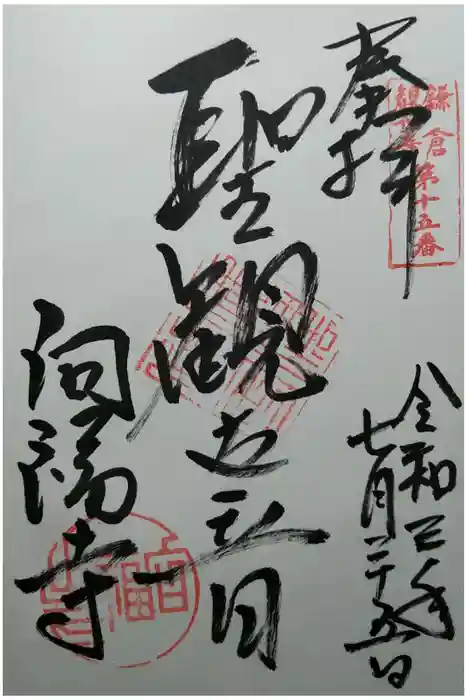 奉拝
鎌倉観世音第十五番
聖観世音
向福寺
令和三年
七月二十五日